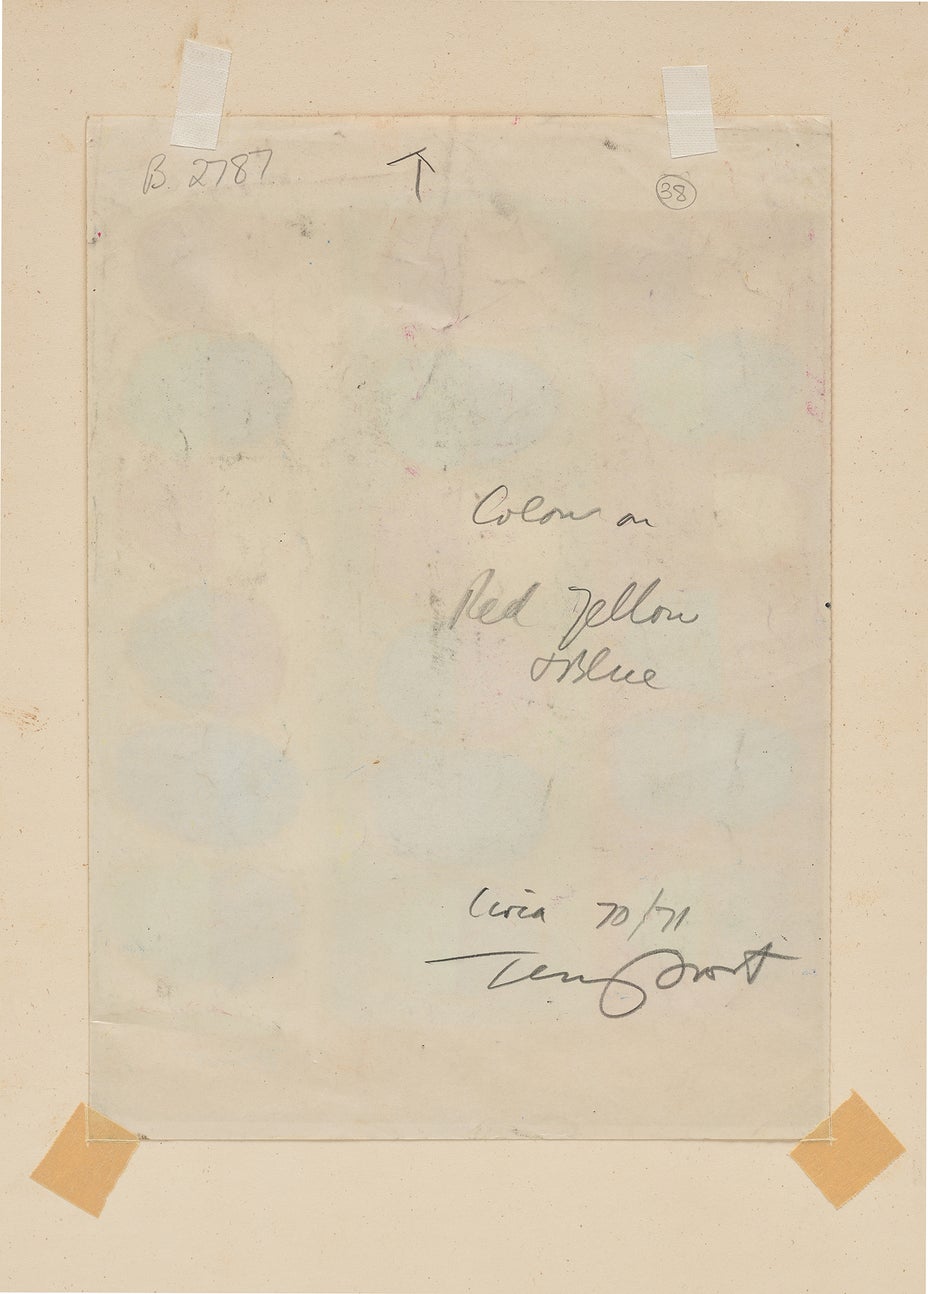 B. 2787
38
Colour on
Red Yellow
+ Blue
Circa 70/71
Terry Frost